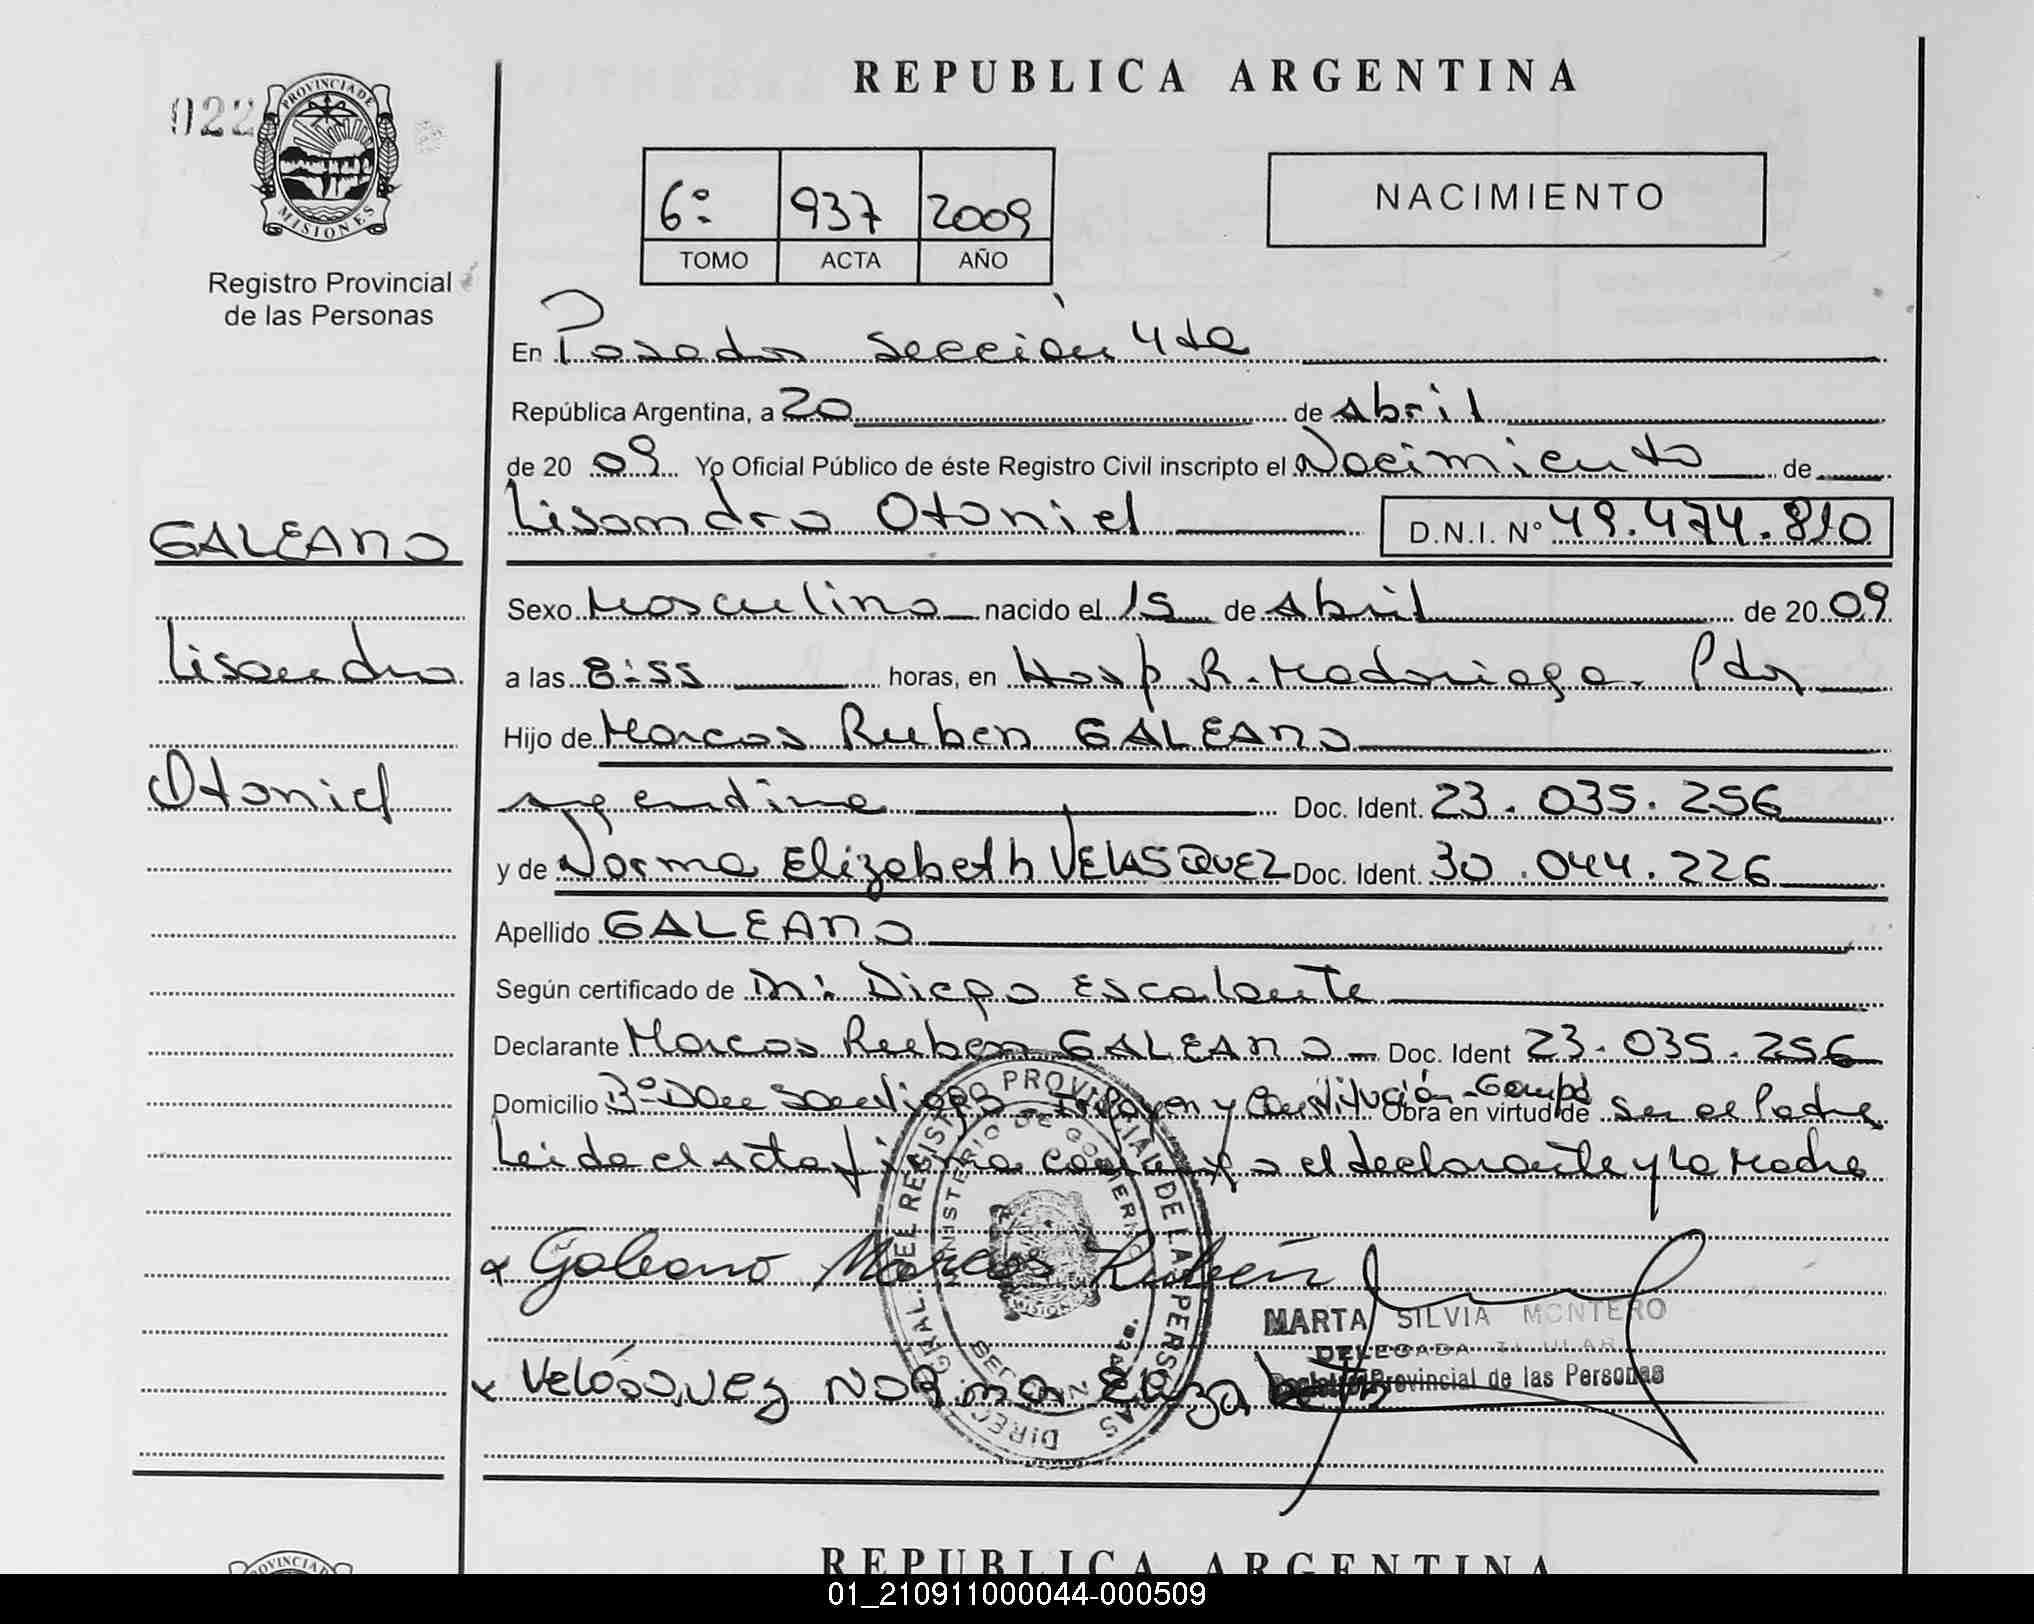 REPUBLICA ARGENTINA
022
PROVINCIA DE
MISIONES
Registro Provincial
de las Personas
6º 937 2009
TOMO ACTA AÑO
NACIMIENTO
En Posadas Sección 4ta
República Argentina, a 20 de Abril
de 2009 Yo Oficial Público de éste Registro Civil inscripto el Nacimiento de
Lisandro Otoniel D.N.I. Nº 49.474.810
GALEANO
Lisandro
Otoniel
Sexo Masculino nacido el 15 de Abril de 2009
a las 8:55 horas, en Hosp R. Madariaga. Pdas
Hijo de Marcos Ruben GALEANO
argentina Doc. Ident. 23.035.256
y de Norma Elizabeth VELASQUEZ Doc. Ident. 30.044.226
Apellido GALEANO
Según certificado de Diego Escalante
Declarante Marcos Ruben GALEANO Doc. Ident 23.035.256
Domicilio Bº Don Santiago y Constitución-Garupá Obra en virtud de Ser el Padre
Leida el acta firma el declarante y La Madre
Galeano Marcos Rubén
MARTA SILVIA MONTERO
DELEGADA TITULAR
Registro Provincial de las Personas
Velásquez Norma Elizabeth
DIRECC. GRAL. DEL REGISTRO PROVINCIAL DE LAS PERSONAS
MINISTERIO DE GOBIERNO
MISIONES
REPUBLICA ARGENTINA
01_210911000044-000509